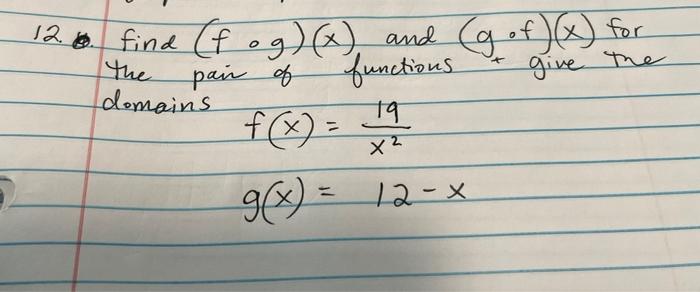 12. find (f ∘ g)(x) and (g ∘ f)(x) for
the pair of functions + give the
domains
f(x) = 19/x²
g(x) = 12 - x